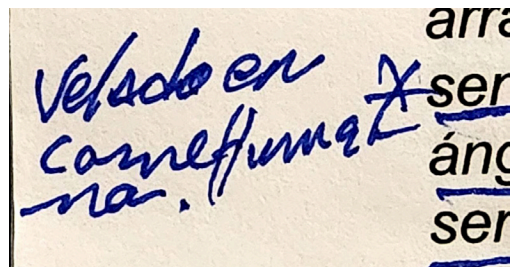 Velado en
carne Huma
na.
arra
ser
áng
ser